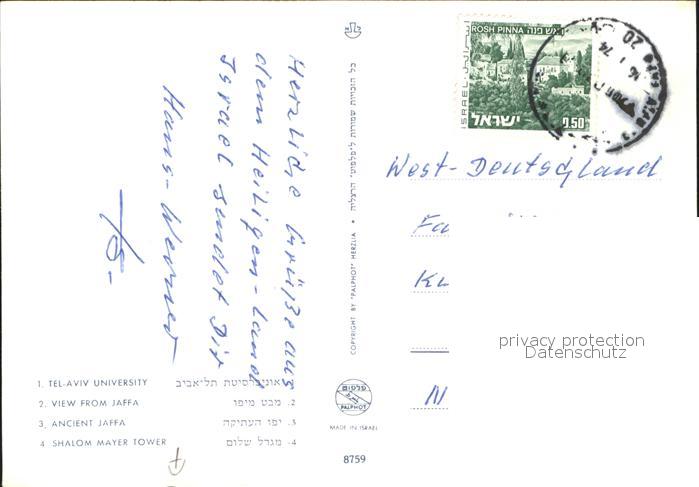 ROSH PINNA ראש פנה
ISRAEL
ישראל
0.50
16.1.74
20
Herzliche Grüße aus
dem Heiligen-Land
Israel sendet Dir
Hans-Werner
West-Deutschland
privacy protection
Datenschutz
כל הזכויות שמורות ל״פלפוט״ הרצליה • COPYRIGHT BY "PALPHOT" HERZLIA
פלפוט
PALPHOT
MADE IN ISRAEL
8759
1. TEL-AVIV UNIVERSITY אוניברסיטת תל-אביב
2. VIEW FROM JAFFA 2. מבט מיפו
3. ANCIENT JAFFA 3. יפו העתיקה
4 SHALOM MAYER TOWER 4- מגדל שלום